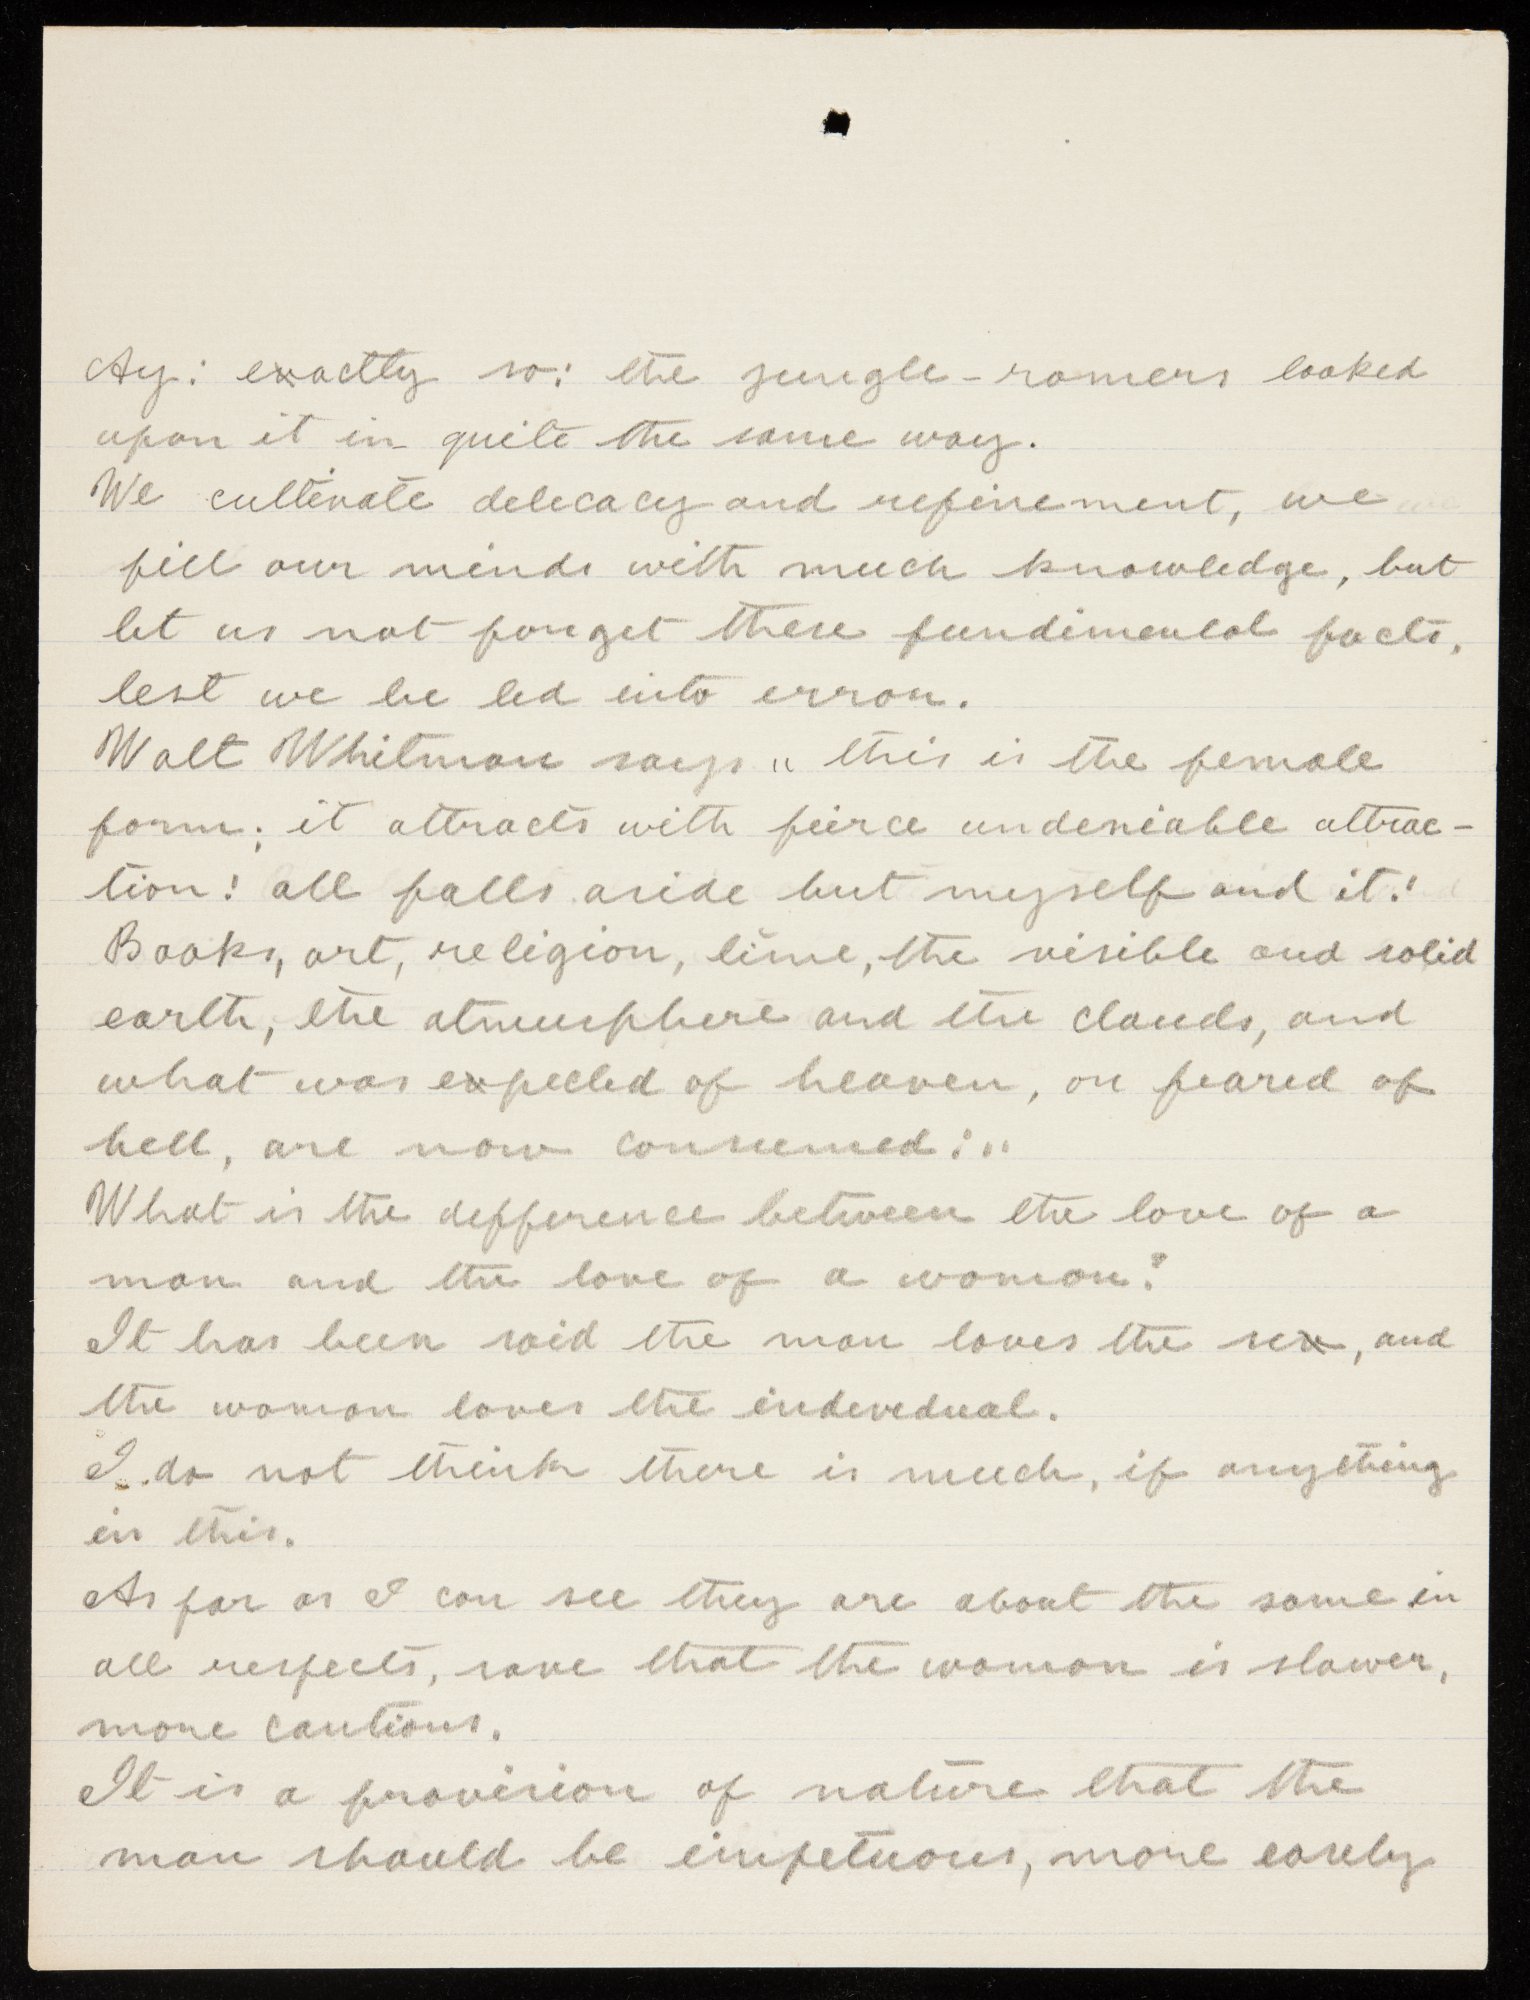 Ay: exactly so: the jungle-romers looked
upon it in quite the same way.
We cultivate delecacy and refinement, we
fill our minds with much knowledge, but
let us not forget these fundimental facts,
lest we be led into error.
Walt Whitman says " this is the female
form; it attracts with feirce undeniable attrac-
tion! all falls aside but myself and it!
Books, art, religion, time, the visible and solid
earth, the atmusphere and the clouds, and
what was expected of heaven, or feared of
hell, are now consumed:"
What is the defference between the love of a
man and the love of a woman?
It has been said the man loves the sex, and
the woman loves the indevedual.
I do not think there is much, if anything
in this.
As far as I can see they are about the same in
all respects, save that the woman is slower,
more cautious.
It is a provision of nature that the
man should be impetuous, more easely